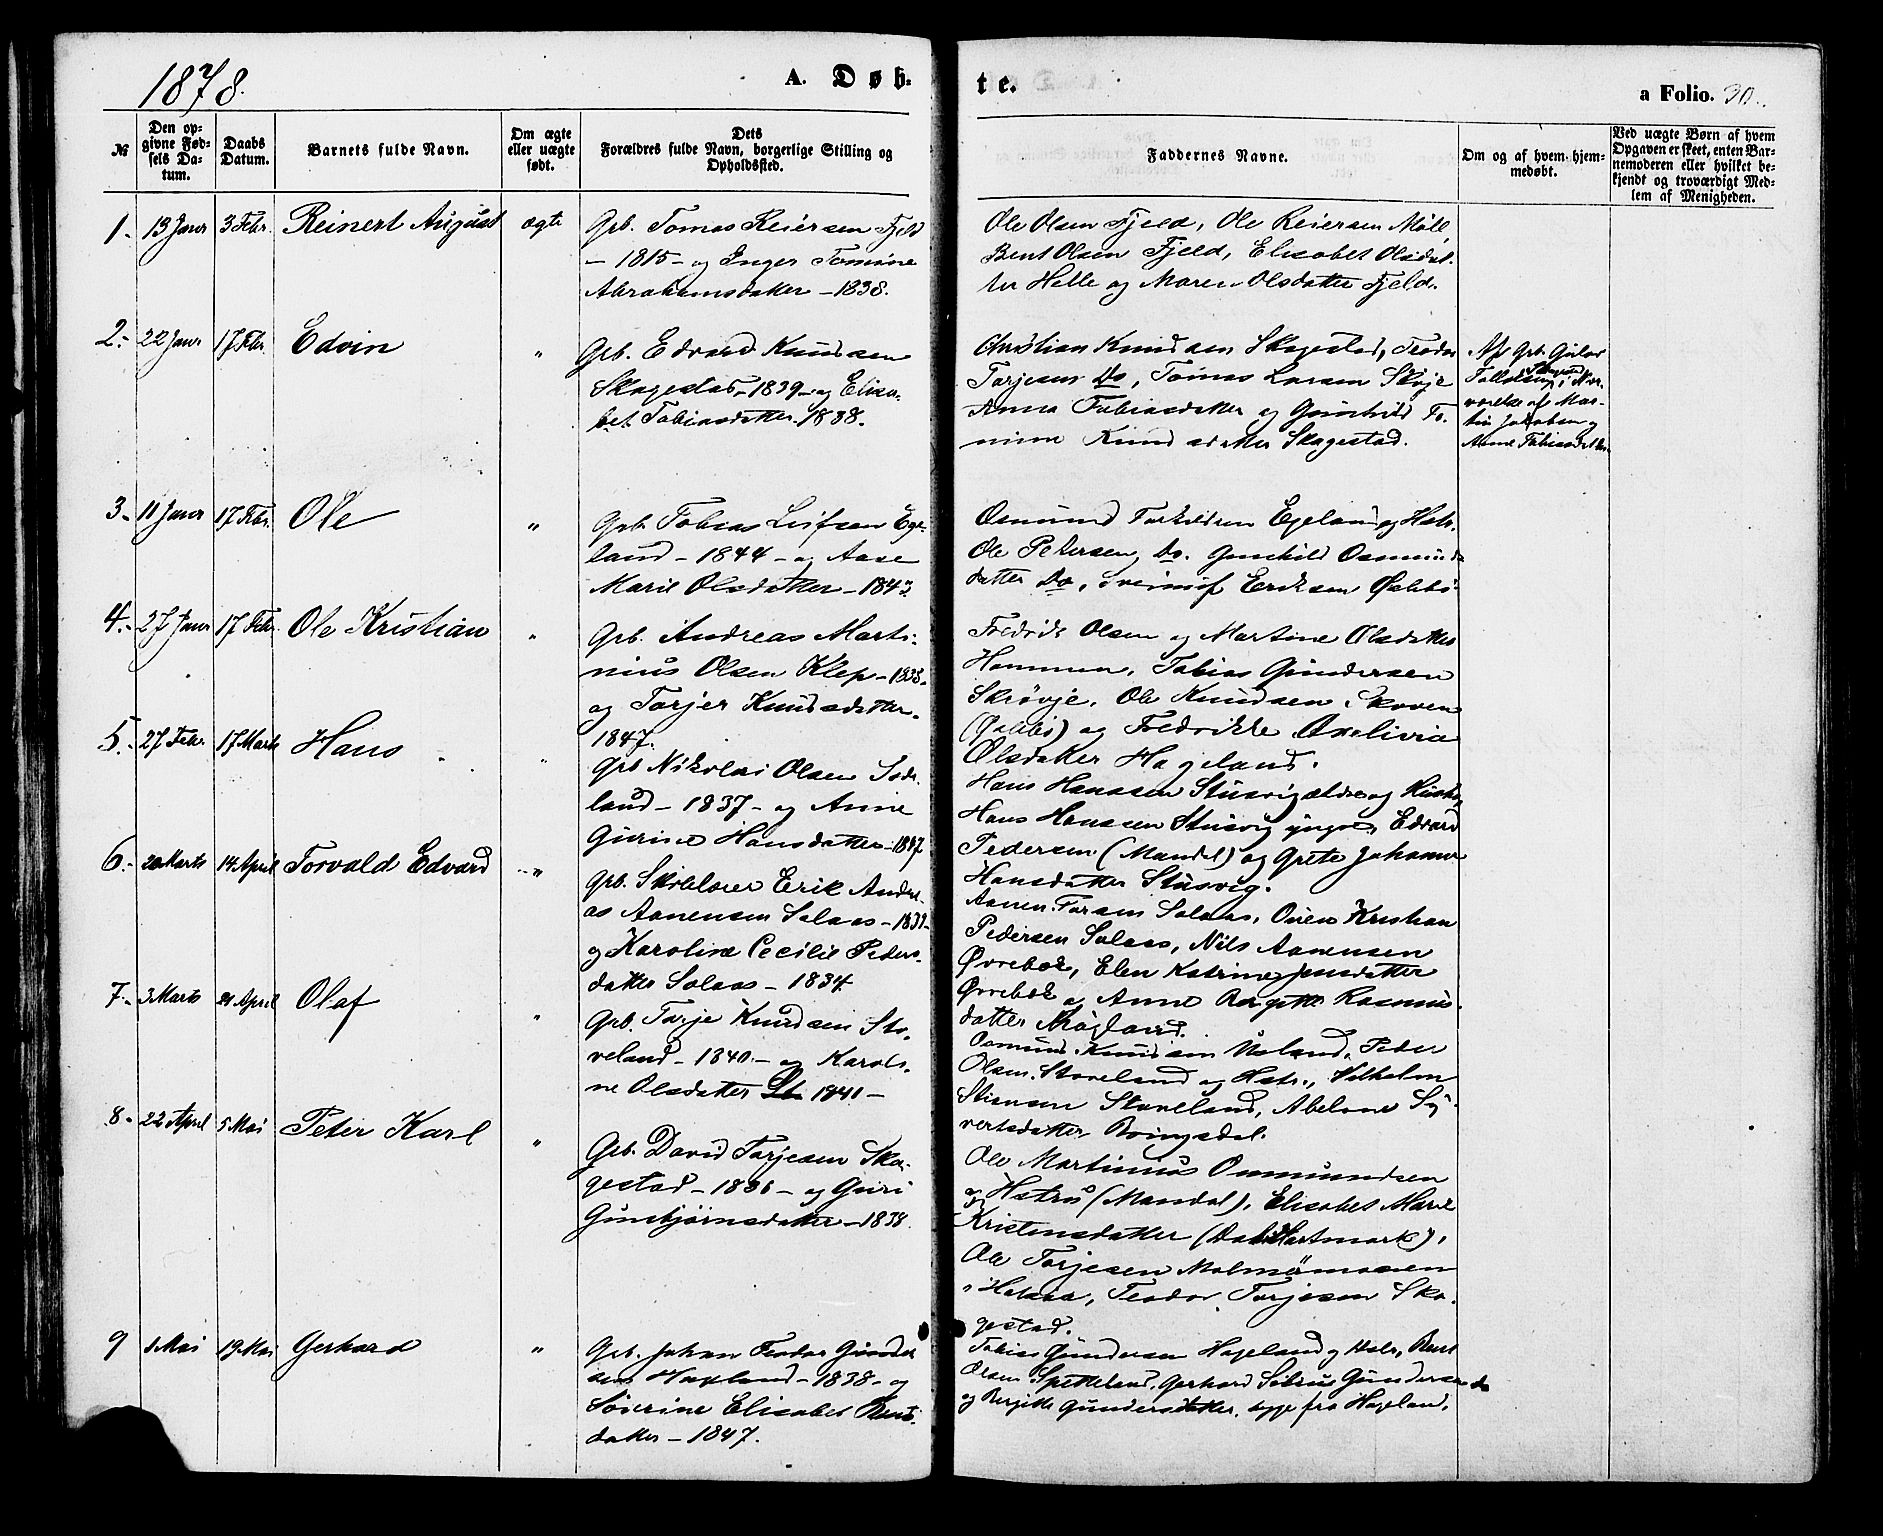 1878.
A. Døb-
te.
a Folio. 30.
№
Den op-
givne Fød-
sels Da-
tum.
Daabs
Datum.
Barnets fulde Navn.
Om ægte
eller uægte
født.
Dets
Forældres fulde Navn, borgerlige Stilling og
Opholdssted.
Faddernes Navne.
Om og af hvem hjem-
medøbt.
Ved uægte Børn af hvem
Opgaven er skeet, enten Bar-
nemoderen eller hvilket be-
kjendt og troværdigt Med-
lem af Menigheden.
1. 13 Janr 3 Febr. Reinert August ægte
Grb. Tomas Reiersen Fjeld
- 1815 - og Inger Tomine
Abrahamsdatter - 1838.
Ole Olsen Fjeld, Ole Reiersen Møll
Bent Olsen Fjeld, Elisabet Olsdat-
ter Helle og Maren Olsdatter Fjeld.
2. 22 Janr 17 Febr. Edvin "
Grb. Edvard Knudsen
Skagestad - 1839 - og Elisa-
bet Tobiasdatter. 1838.
Christian Knudsen Skagestad, Teodor
Tarjesen Do, Tomas Larsen Skøje
Anna Tobiasdatter og Gunhild To-
mine Knudsdatter Skagestad.
Af Grb.
værelse af Mar-
tin Jakobsen og
Anne Tobiasdatter
3. 11 Janr 17 Febr. Ole "
Grb. Tobias Leifsen Ege-
land - 1844 - og Aase
Marie Olsdatter - 1843
Osmund Torkildsen Egeland og Hstr.
Ole Petersen Do. Gunhild Osmunds
datter Do, Eriksen
4. 27 Janr 17 Febr. Ole Kristian "
Grb. Andreas Marti-
nius Olsen Klep - 1838.
og Tarjer Knudsdatter.
1847.
Fredrik Olsen og Martine Olsdatter
Hommen, Tobias Gundersen
Skrøvje. Ole Knudsen Skoven
og Fredrikke Axelivia
Olsdatter Hageland.
5. 27 Febr. 17 Marts Hans "
Grb Nikolai Olsen Søde-
land - 1837 - og Anne
Gurine Hansdatter - 1847
Hans Hanssen Stusvig ældre og Hustr.
Hans Hanssen Stusvig yngre, Edvard
Pedersen (Mandal) og Grete Johanne
Hansdatter Stusvig.
6. 20 Marts 14 April Torvald Edvard "
Grb. Skolelærer Erik Andre-
as Aanensen Solaas - 1832 -
og Karoline Cecilie Peders-
datter Solaas - 1834.
Aanen Solaas, Kristian
Pedersen Solaas, Nils Aanensen
Øvrebøe, Elen Katrine Jensdatter
Øvrebøe og Anne Birgitte Rasmus-
datter
7. 3 Marts 21 April Olaf "
Grb. Tarje Knudsen Sto-
veland - 1840. - og Karoli-
ne Olsdatter St. 1841 -
Osmund Knudsen Usland, Peder
Olsen Stoveland og Hstr., Vilhelm
Stiansen Stoveland, Abelone Sy-
vertsdatter Bringsdal.
8. 22 April 5 Mai Peter Karl "
Grb. David Tarjesen Ska-
gestad - 1836 - og Guri
Gunbjørnsdatter - 1838.
Ole Martinius Osmundsen
og Hstru (Mandal), Elisabet Marie
Kristensdatter
Ole Tarjesen Malmømoen
i Halsaa, Teodor Tarjesen Ska-
gestad.
9 1 Mai 19 Mai Gerhard "
Grb. Johan Teodor Gunder
sen Hageland - 1838 - og
Søverine Elisabet Bents-
datter - 1847.
Tobias Gundersen Hageland og Hstr, Bent
Olsen Spetteland, Gerhard Gundersen
og Birgitte Gundersdatter, begge fra Hageland.